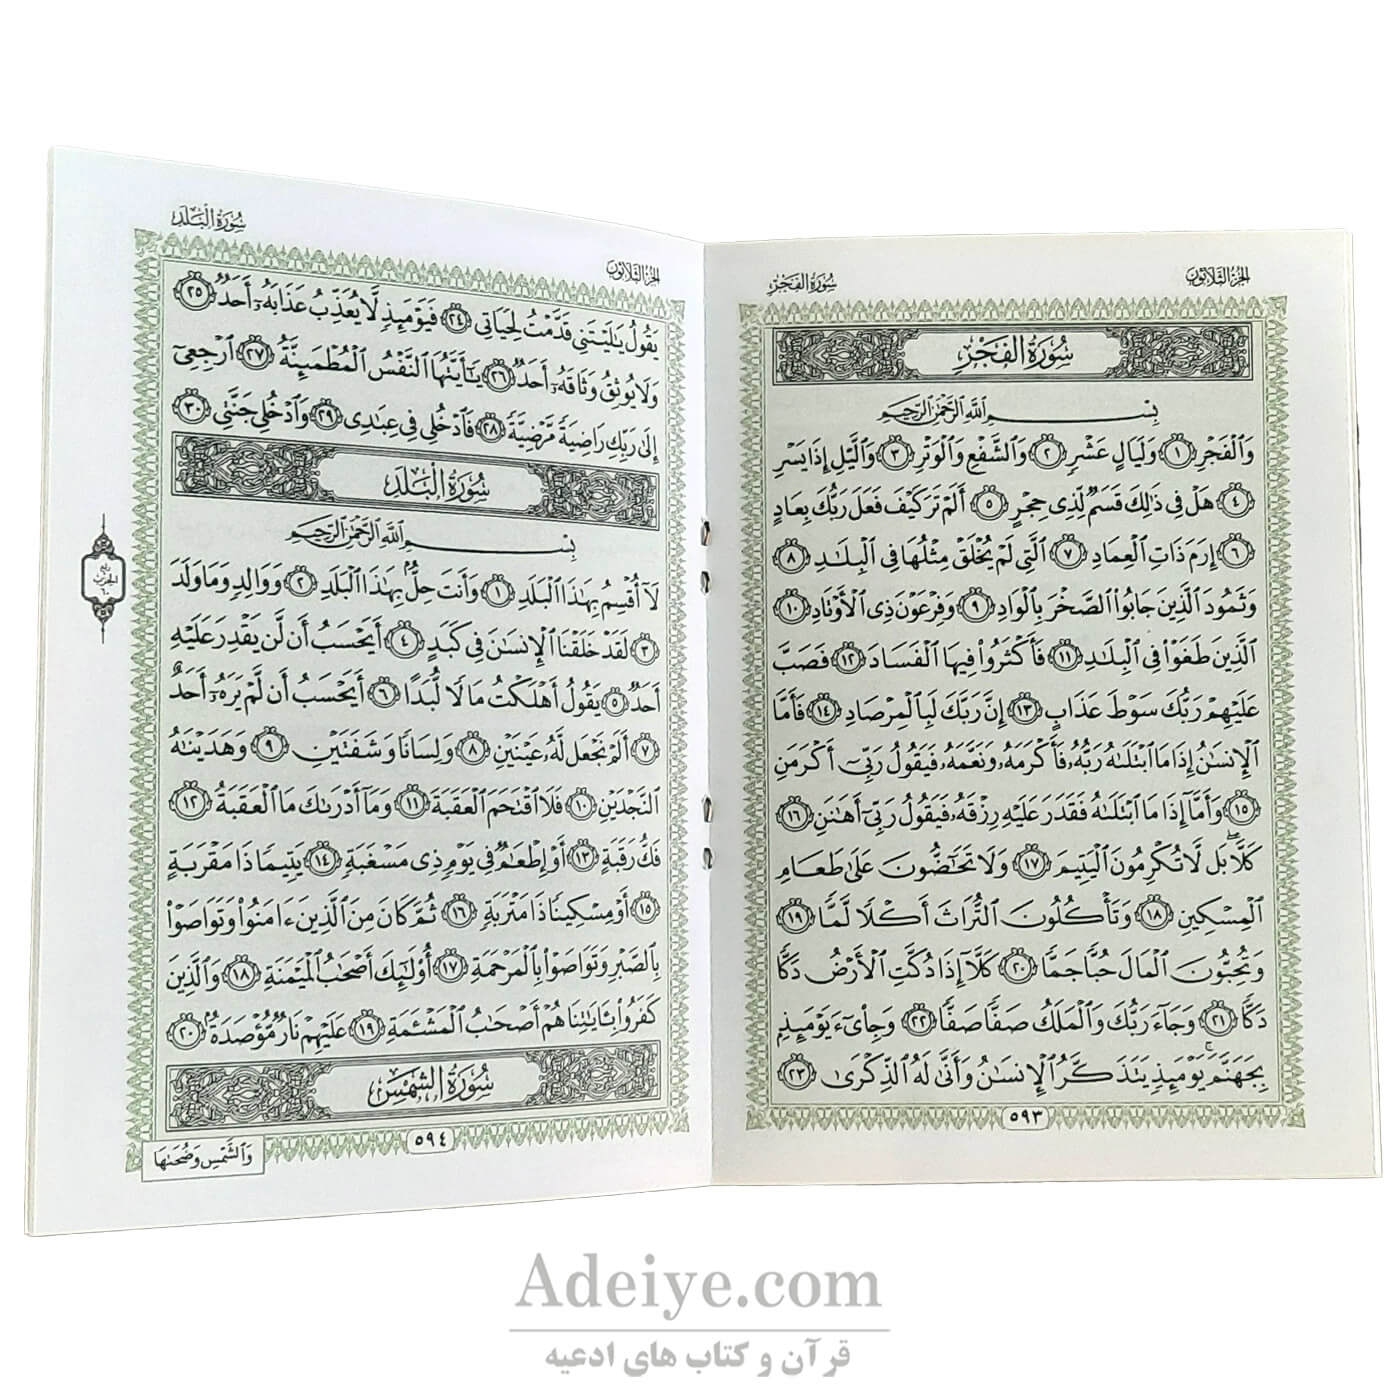 الجزء الثلاثون
سورة الفجر
سُورَةُ الفَجْرِ
بِسْمِ ٱللَّهِ ٱلرَّحْمَٰنِ ٱلرَّحِيمِ
وَٱلْفَجْرِ ١ وَلَيَالٍ عَشْرٍ ٢ وَٱلشَّفْعِ وَٱلْوَتْرِ ٣ وَٱلَّيْلِ إِذَا يَسْرِ
٤ هَلْ فِى ذَٰلِكَ قَسَمٌ لِّذِى حِجْرٍ ٥ أَلَمْ تَرَ كَيْفَ فَعَلَ رَبُّكَ بِعَادٍ
٦ إِرَمَ ذَاتِ ٱلْعِمَادِ ٧ ٱلَّتِى لَمْ يُخْلَقْ مِثْلُهَا فِى ٱلْبِلَٰدِ ٨
وَثَمُودَ ٱلَّذِينَ جَابُوا۟ ٱلصَّخْرَ بِٱلْوَادِ ٩ وَفِرْعَوْنَ ذِى ٱلْأَوْتَادِ ١٠
ٱلَّذِينَ طَغَوْا۟ فِى ٱلْبِلَٰدِ ١١ فَأَكْثَرُوا۟ فِيهَا ٱلْفَسَادَ ١٢ فَصَبَّ
عَلَيْهِمْ رَبُّكَ سَوْطَ عَذَابٍ ١٣ إِنَّ رَبَّكَ لَبِٱلْمِرْصَادِ ١٤ فَأَمَّا
ٱلْإِنسَٰنُ إِذَا مَا ٱبْتَلَىٰهُ رَبُّهُۥ فَأَكْرَمَهُۥ وَنَعَّمَهُۥ فَيَقُولُ رَبِّىٓ أَكْرَمَنِ
١٥ وَأَمَّآ إِذَا مَا ٱبْتَلَىٰهُ فَقَدَرَ عَلَيْهِ رِزْقَهُۥ فَيَقُولُ رَبِّىٓ أَهَٰنَنِ ١٦
كَلَّا ۖ بَل لَّا تُكْرِمُونَ ٱلْيَتِيمَ ١٧ وَلَا تَحَٰٓضُّونَ عَلَىٰ طَعَامِ
ٱلْمِسْكِينِ ١٨ وَتَأْكُلُونَ ٱلتُّرَاثَ أَكْلًا لَّمًّا ١٩
وَتُحِبُّونَ ٱلْمَالَ حُبًّا جَمًّا ٢٠ كَلَّآ إِذَا دُكَّتِ ٱلْأَرْضُ دَكًّا
دَكًّا ٢١ وَجَآءَ رَبُّكَ وَٱلْمَلَكُ صَفًّا صَفًّا ٢٢ وَجِا۟ىٓءَ يَوْمَئِذٍۭ
بِجَهَنَّمَ ۚ يَوْمَئِذٍ يَتَذَكَّرُ ٱلْإِنسَٰنُ وَأَنَّىٰ لَهُ ٱلذِّكْرَىٰ ٢٣
٥٩٣
الجزء الثلاثون
سورة البلد
يَقُولُ يَٰلَيْتَنِى قَدَّمْتُ لِحَيَاتِى ٢٤ فَيَوْمَئِذٍ لَّا يُعَذِّبُ عَذَابَهُۥٓ أَحَدٌ ٢٥
وَلَا يُوثِقُ وَثَاقَهُۥٓ أَحَدٌ ٢٦ يَٰٓأَيَّتُهَا ٱلنَّفْسُ ٱلْمُطْمَئِنَّةُ ٢٧ ٱرْجِعِىٓ
إِلَىٰ رَبِّكِ رَاضِيَةً مَّرْضِيَّةً ٢٨ فَٱدْخُلِى فِى عِبَٰدِى ٢٩ وَٱدْخُلِى جَنَّتِى ٣٠
سُورَةُ البَلَدِ
بِسْمِ ٱللَّهِ ٱلرَّحْمَٰنِ ٱلرَّحِيمِ
لَآ أُقْسِمُ بِهَٰذَا ٱلْبَلَدِ ١ وَأَنتَ حِلٌّۢ بِهَٰذَا ٱلْبَلَدِ ٢ وَوَالِدٍ وَمَا وَلَدَ
٣ لَقَدْ خَلَقْنَا ٱلْإِنسَٰنَ فِى كَبَدٍ ٤ أَيَحْسَبُ أَن لَّن يَقْدِرَ عَلَيْهِ
أَحَدٌ ٥ يَقُولُ أَهْلَكْتُ مَالًا لُّبَدًا ٦ أَيَحْسَبُ أَن لَّمْ يَرَهُۥٓ أَحَدٌ
٧ أَلَمْ نَجْعَل لَّهُۥ عَيْنَيْنِ ٨ وَلِسَانًا وَشَفَتَيْنِ ٩ وَهَدَيْنَٰهُ
ٱلنَّجْدَيْنِ ١٠ فَلَا ٱقْتَحَمَ ٱلْعَقَبَةَ ١١ وَمَآ أَدْرَىٰكَ مَا ٱلْعَقَبَةُ ١٢
فَكُّ رَقَبَةٍ ١٣ أَوْ إِطْعَٰمٌ فِى يَوْمٍ ذِى مَسْغَبَةٍ ١٤ يَتِيمًا ذَا مَقْرَبَةٍ
١٥ أَوْ مِسْكِينًا ذَا مَتْرَبَةٍ ١٦ ثُمَّ كَانَ مِنَ ٱلَّذِينَ ءَامَنُوا۟ وَتَوَاصَوْا۟
بِٱلصَّبْرِ وَتَوَاصَوْا۟ بِٱلْمَرْحَمَةِ ١٧ أُو۟لَٰٓئِكَ أَصْحَٰبُ ٱلْمَيْمَنَةِ ١٨ وَٱلَّذِينَ
كَفَرُوا۟ بِـَٔايَٰتِنَا هُمْ أَصْحَٰبُ ٱلْمَشْـَٔمَةِ ١٩ عَلَيْهِمْ نَارٌ مُّؤْصَدَةٌۢ ٢٠
سُورَةُ الشَّمْسِ
٥٩٤
وَٱلشَّمْسِ وَضُحَىٰهَا
ربع
الحزب
٦٠
Adeiye.com
قرآن و کتاب های ادعیه